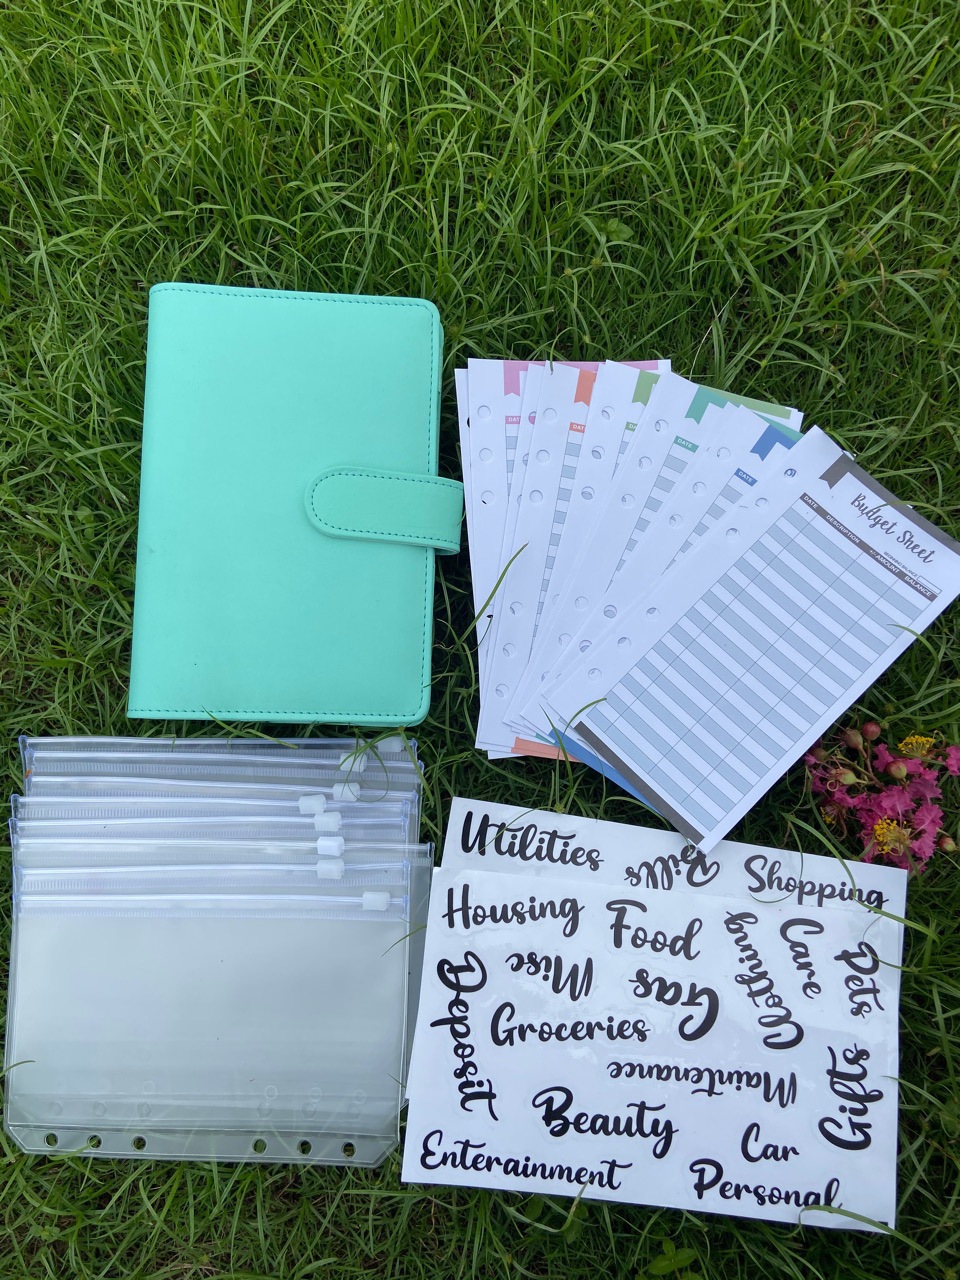 DATE
DATE
DAT
DATE
DATE
Budget Sheet
DATE DESCRIPTION +/- AMOUNT BALANCE
Utilities
Bills
Shopping
Housing
Food
Clothing
Care
Pets
Misc
Gas
Deposit
Groceries
Maintenance
Gifts
Beauty
Car
Enterainment
Personal